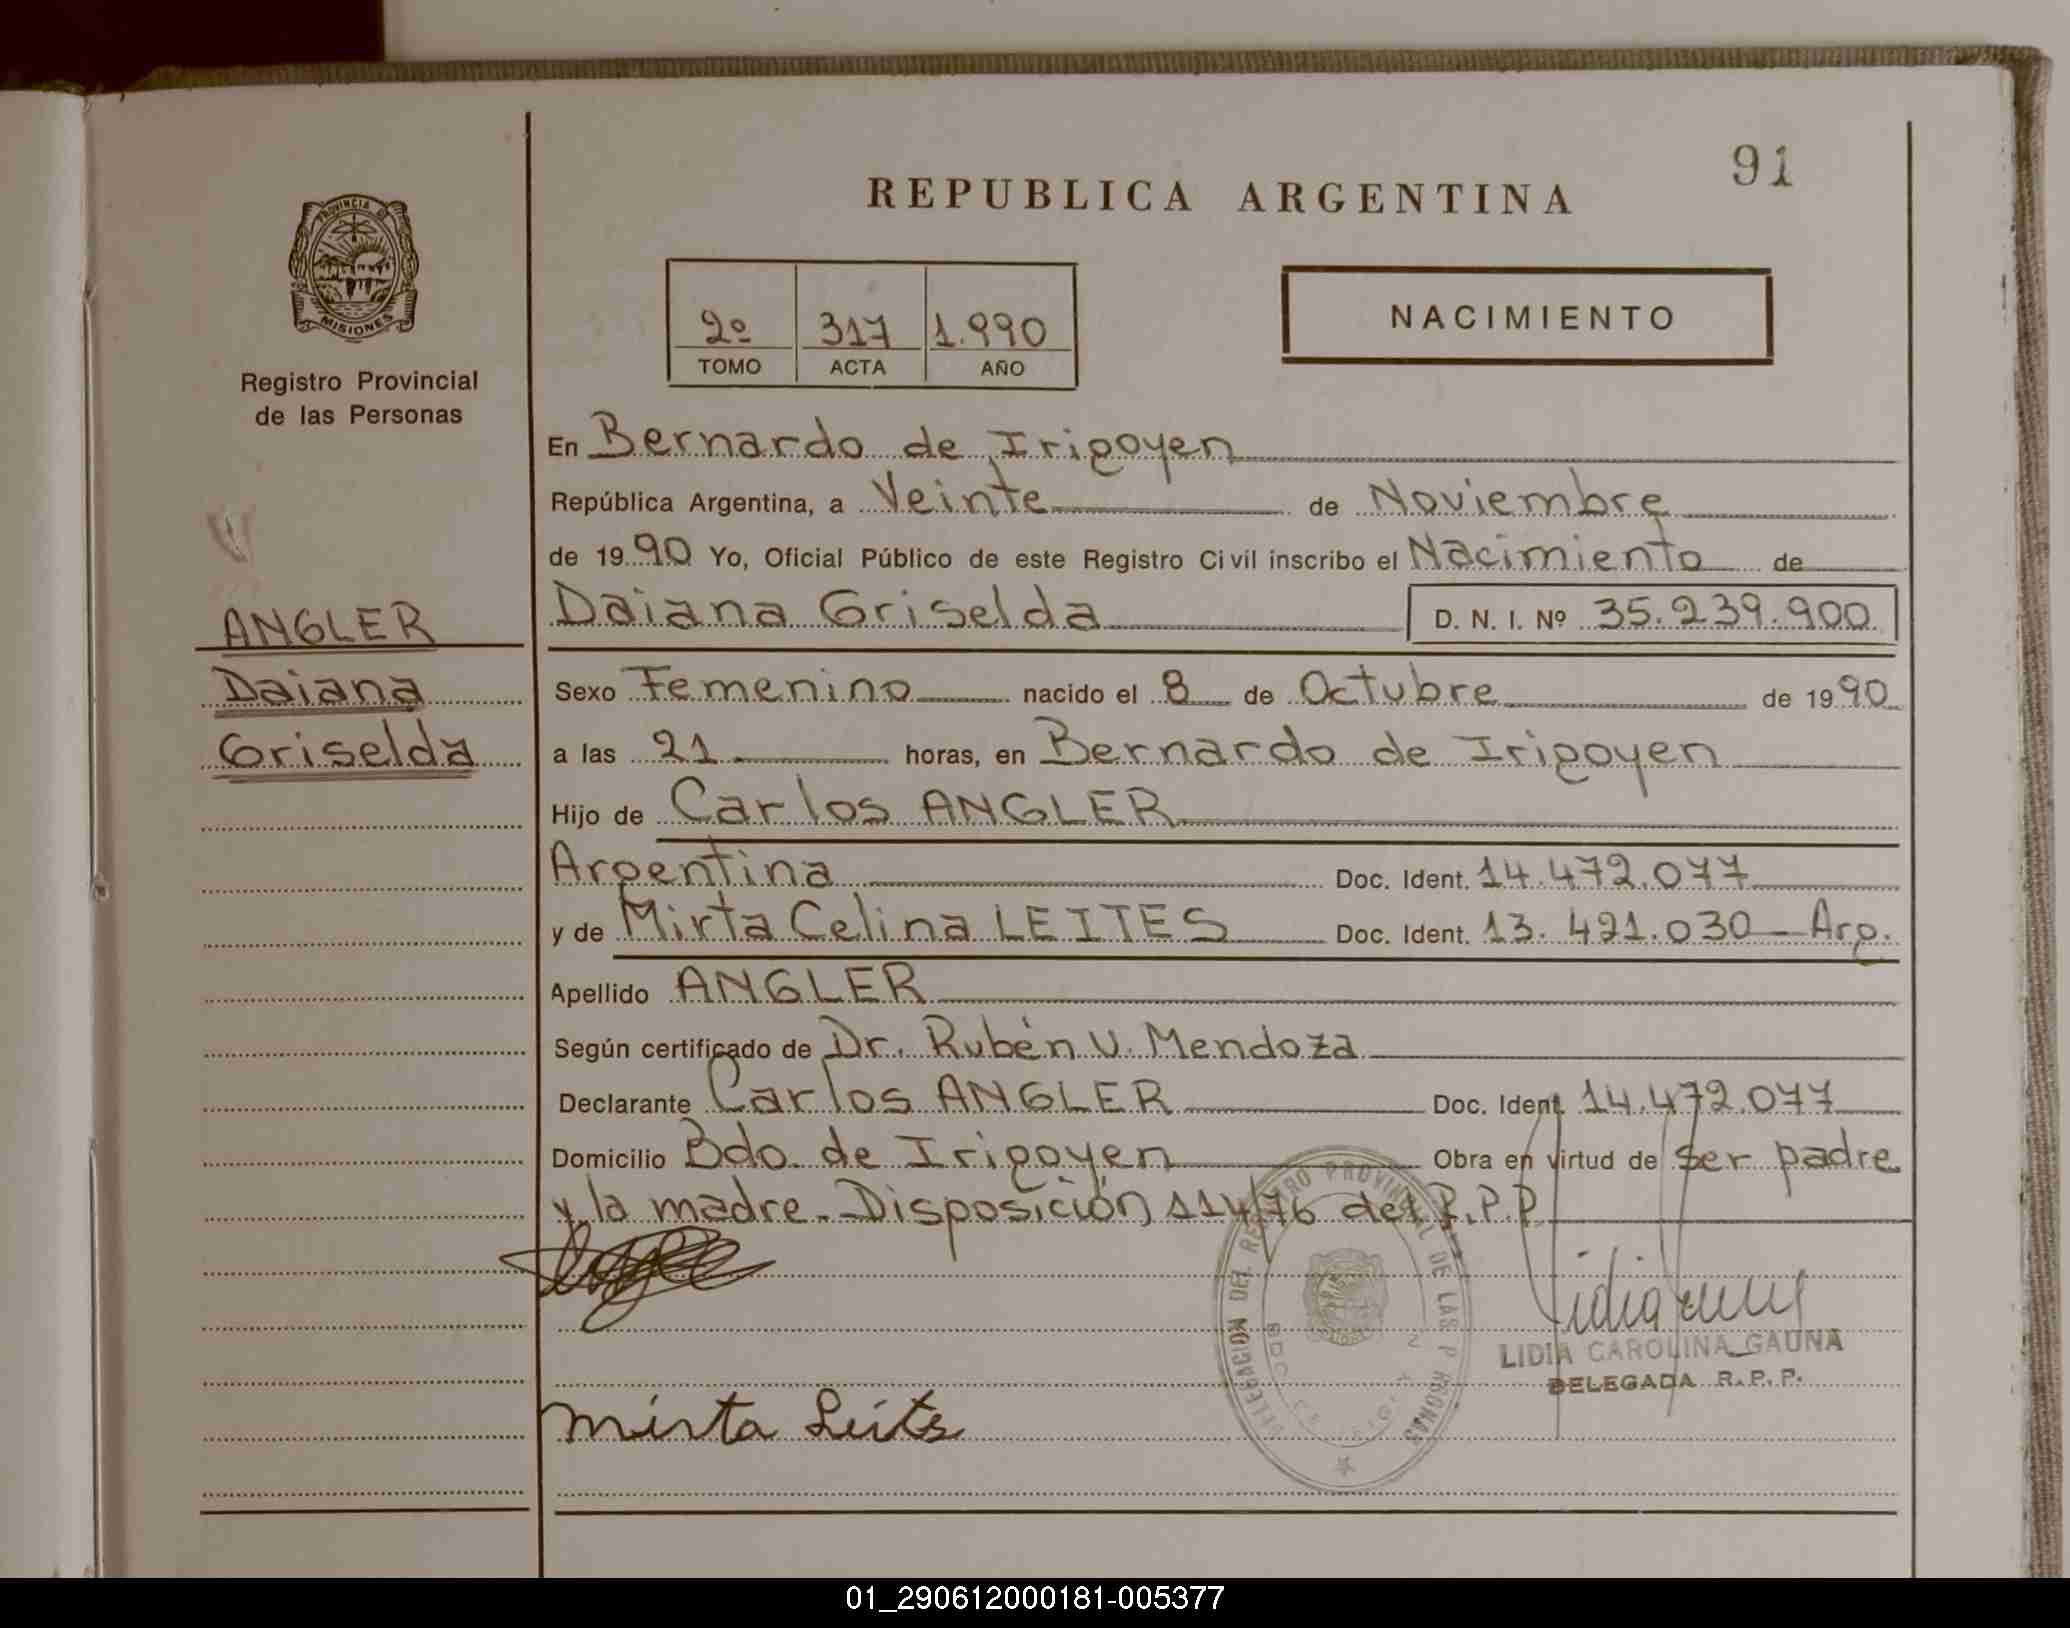 91
REPUBLICA ARGENTINA
PROVINCIA DE
MISIONES
Registro Provincial
de las Personas
2º 317 1.990
TOMO ACTA AÑO
NACIMIENTO
En Bernardo de Irigoyen
República Argentina, a Veinte de Noviembre
de 1990 Yo, Oficial Público de este Registro Civil inscribo el Nacimiento de
ANGLER
Daiana Griselda D. N. I. Nº 35.239.900
Daiana
Sexo Femenino nacido el 8 de Octubre de 1990
Griselda
a las 21 horas, en Bernardo de Irigoyen
Hijo de Carlos ANGLER
Argentina Doc. Ident. 14.472.077
y de Mirta Celina LEITES Doc. Ident. 13.421.030 - Arg.
Apellido ANGLER
Según certificado de Dr. Rubén V. Mendoza
Declarante Carlos ANGLER Doc. Ident. 14.472.077
Domicilio Bdo. de Irigoyen Obra en virtud de ser padre
y la madre. Disposición 114/76 del R.P.P.
DELEGACION DEL REGISTRO PROVINCIAL DE LAS PERSONAS
LIDIA CAROLINA GAUNA
DELEGADA R.P.P.
Mirta Leites
01_290612000181-005377